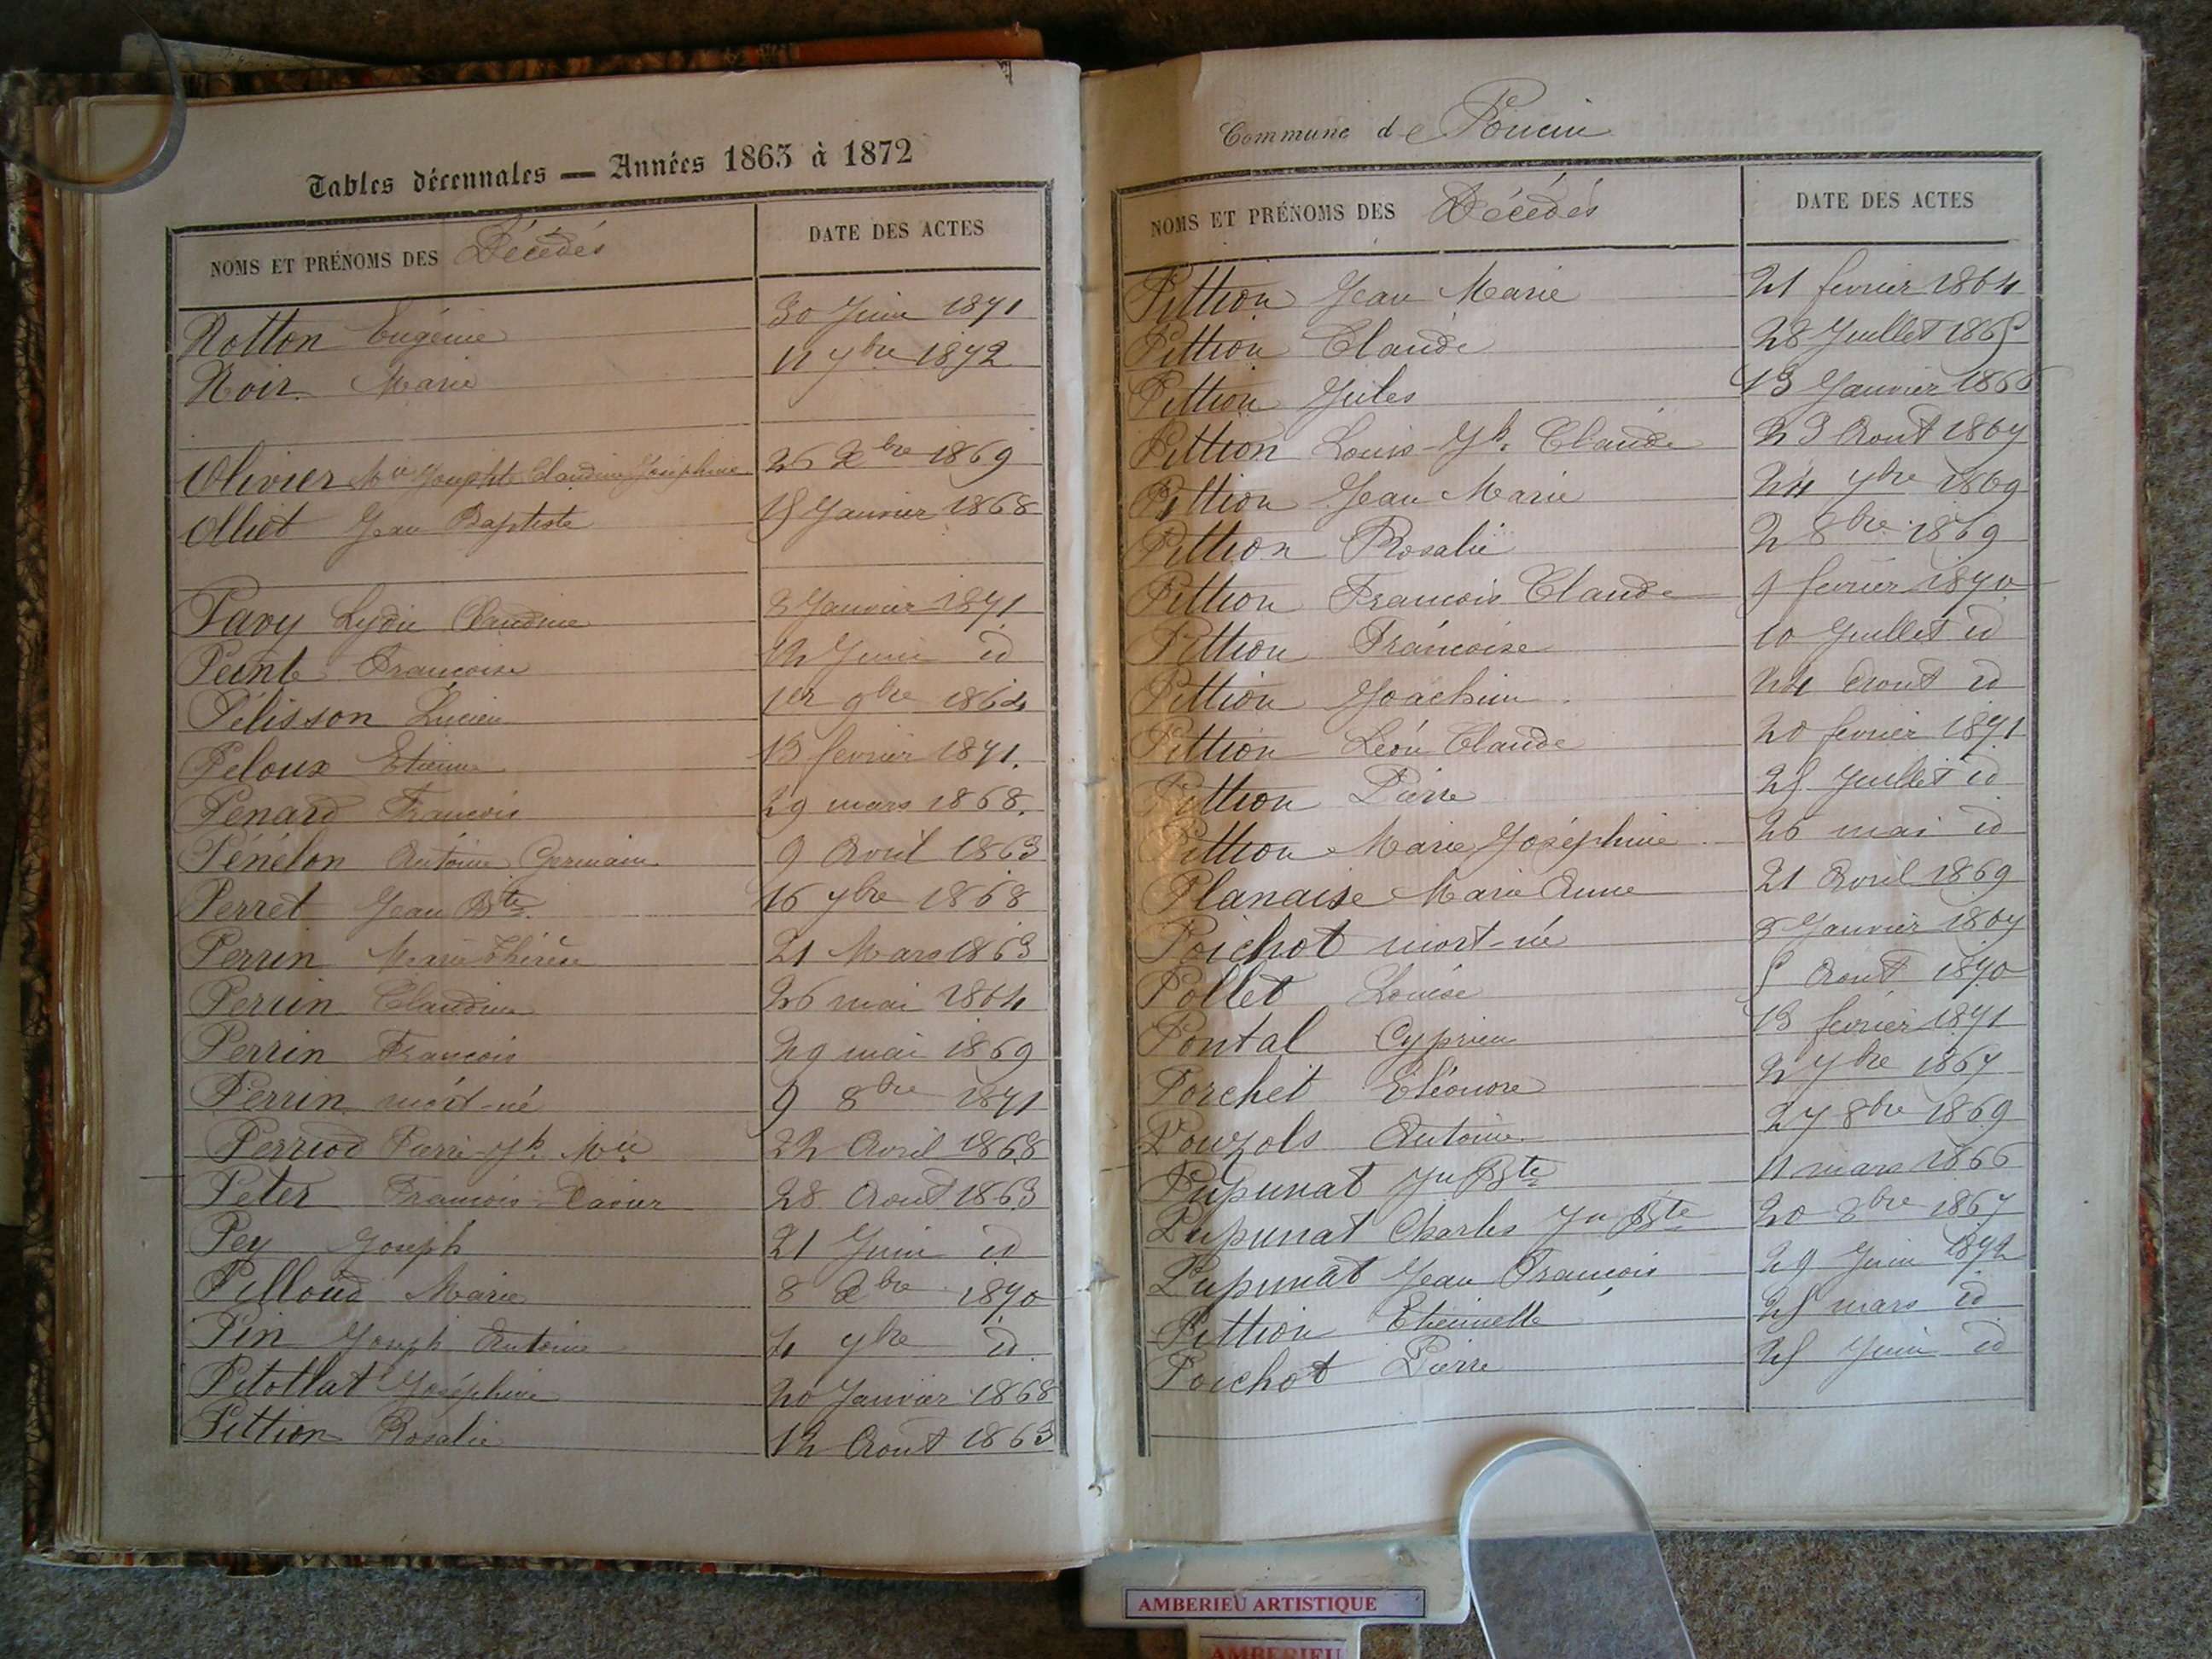 Tables décennales — Années 1863 à 1872
NOMS ET PRÉNOMS DES Décédés DATE DES ACTES
Notton Eugénie 30 Juin 1871
Noir Marie 11 7bre 1872
Olivier Mie Josephte Claudine Joséphine 26 Xbre 1869
Olliet Jean Baptiste 15 Janvier 1868
Pavy Lydie Claudine 8 Janvier 1871
Peint Françoise 12 Juin id
Pélisson Lucien 1er 9bre 1864
Peloux Etienne 13 fevrier 1871.
Penard François 29 mars 1868.
Pénélon Antoine Germain 9 Avril 1863
Perret Jean Bte 16 7bre 1868
Perrin Marie Thérèse 21 Mars 1863
Perrin Claudine 26 mai 1864
Perrin François 29 mai 1869
Perrin mort-né 9 8bre 1871
Perriod Pierre Jh Mie 22 Avril 1868
Peter François Xavier 28 Aout 1863
Pey Joseph 21 Juin id
Pilloud Marie 8 Xbre 1870
Pin Joseph Antoine 4 7bre id
Pitollat Joséphine 20 Janvier 1868
Pittion Rosalie 12 Aout 1863
Commune de Poncin
NOMS ET PRÉNOMS DES Décédés DATE DES ACTES
Pittion Jean Marie 21 fevrier 1864
Pittion Claude 28 Juillet 1865
Pittion Jules 13 Janvier 1866
Pittion Louis Jh Claude 23 Aout 1867
Pittion Jean Marie 24 7bre 1869
Pittion Rosalie 2 8bre 1869
Pittion François Claude 9 fevrier 1870
Pittion Françoise 10 Juillet id
Pittion Joachim 24 Aout id
Pittion Léon Claude 20 fevrier 1871
Pittion Pierre 25 Juillet id
Pittion Marie Joséphine 26 mai id
Planaise Marie Anne 21 Avril 1869
Poichot mort-né 8 Janvier 1867
Pollet Louise 5 Aout 1870
Pontal Cyprien 13 fevrier 1871
Porchet Eléonore 2 7bre 1867
Pouzols Antoine 27 8bre 1869
Pupunat Jn Bte 11 mars 1866
Pupunat Charles Jn Bte 20 8bre 1867
Pupunat Jean François 29 Juin 1872
Pittion Etiennette 25 mars id
Poichot Pierre 25 Juin id
AMBERIEU ARTISTIQUE
AMBERIEU